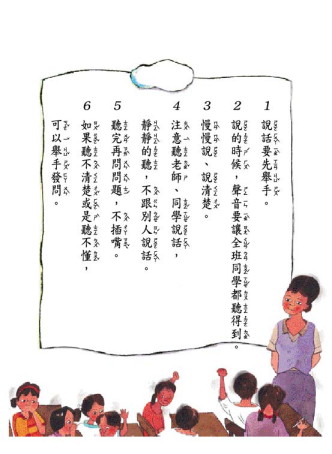 1 說話要先舉手。
2 說的時候，聲音要讓全班同學都聽得到。
3 慢慢說、說清楚。
4 注意聽老師、同學說話，
靜靜的聽，不跟別人說話。
5 聽完再問問題，不插嘴。
6 如果聽不清楚或是聽不懂，
可以舉手發問。